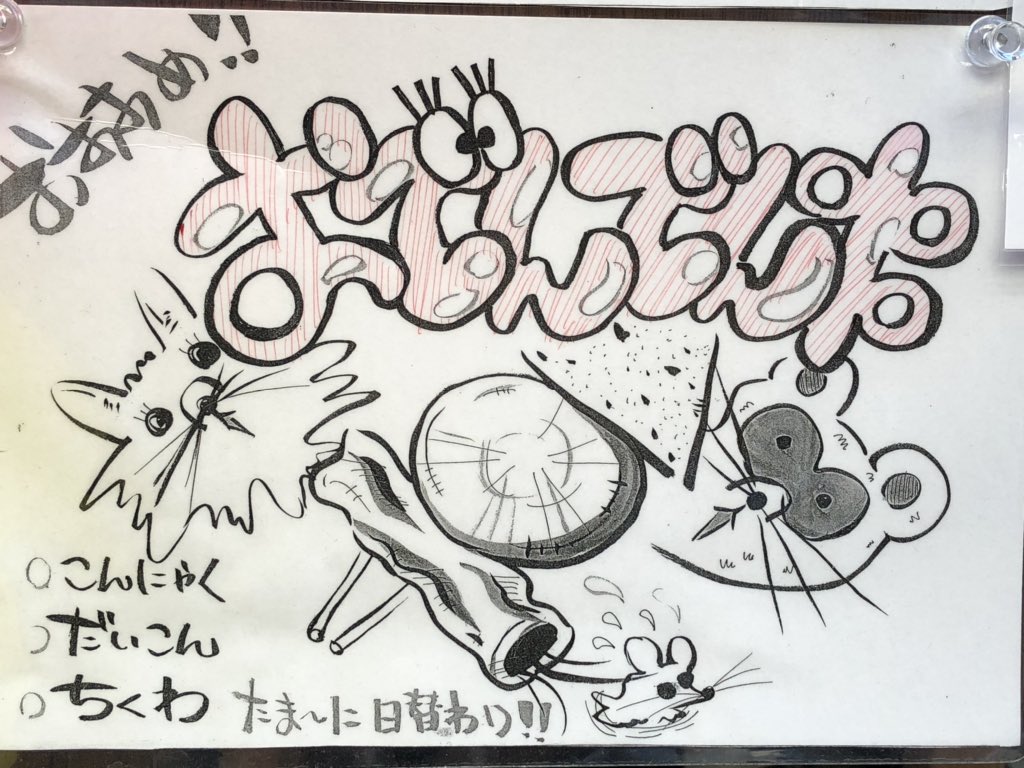 おすすめ!!
おでんでん
○ こんにゃく
○ だいこん
○ ちくわ
たま〜に日替わり!!